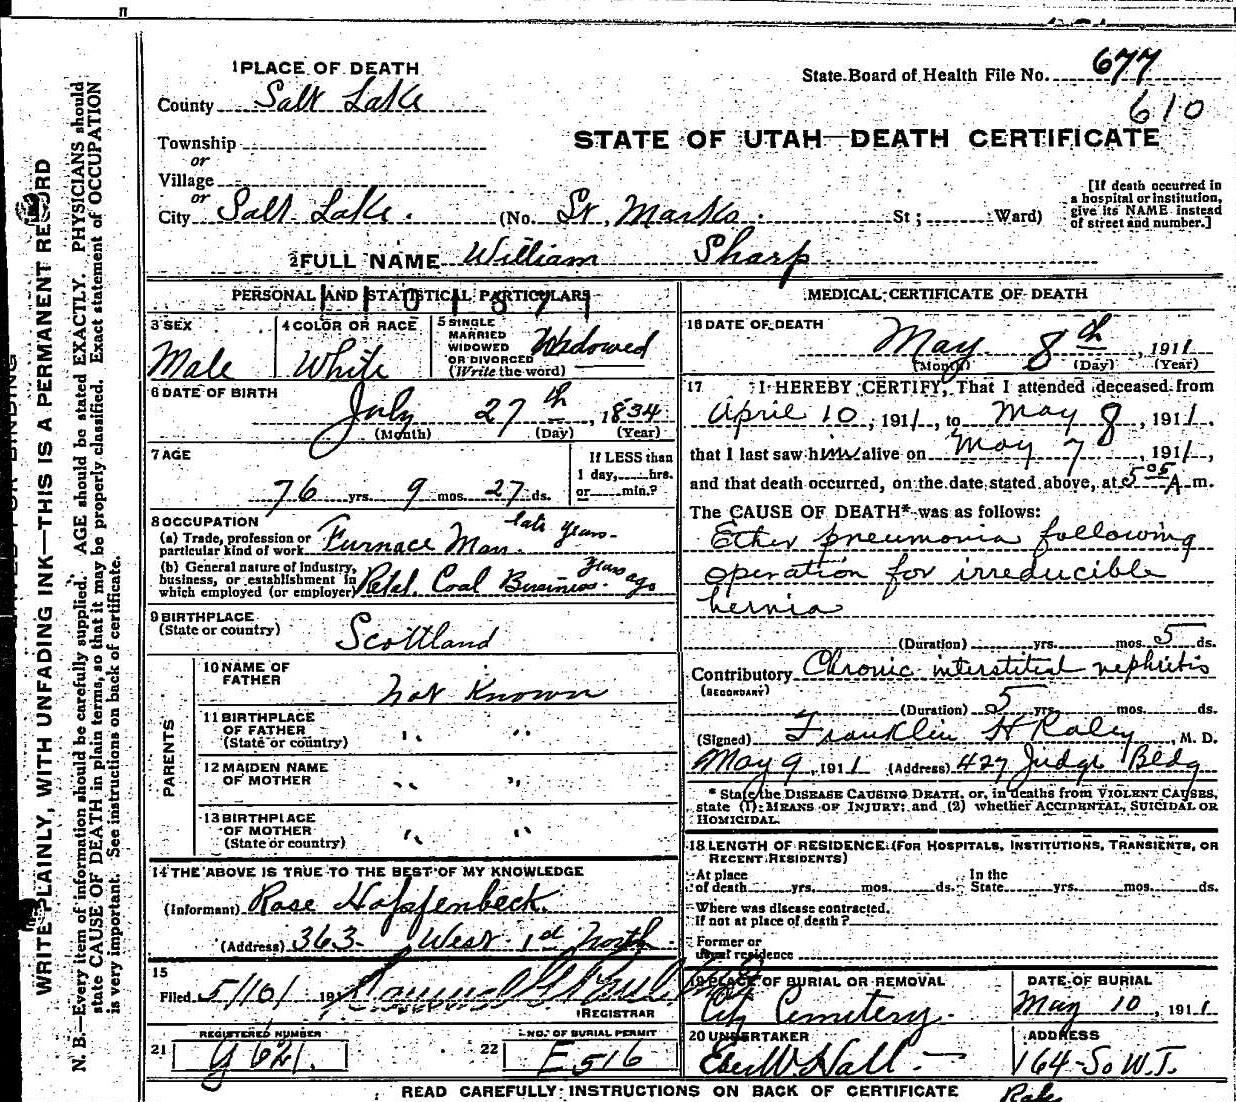 N. B.—Every item of information should be carefully supplied. AGE should be stated EXACTLY. PHYSICIANS should
state CAUSE OF DEATH in plain terms, so that it may be properly classified. Exact statement of OCCUPATION
is very important. See instructions on back of certificate.
WRITE PLAINLY, WITH UNFADING INK—THIS IS A PERMANENT RECORD
1 PLACE OF DEATH
County Salt Lake
Township
or
Village
or
City Salt Lake. (No. St. Marks. St; Ward)
State Board of Health File No. 677
610
STATE OF UTAH—DEATH CERTIFICATE
[If death occurred in
a hospital or institution,
give its NAME instead
of street and number.]
2 FULL NAME William Sharp
PERSONAL AND STATISTICAL PARTICULARS
3 SEX
Male
4 COLOR OR RACE
White
5 SINGLE
MARRIED
WIDOWED
OR DIVORCED
(Write the word)
Widowed
6 DATE OF BIRTH
July 27th, 1834
(Month) (Day) (Year)
7 AGE
76 yrs. 9 mos. 27 ds.
If LESS than
1 day, hrs.
or min.?
8 OCCUPATION
(a) Trade, profession or
particular kind of work
Furnace Man. late years.
(b) General nature of industry,
business, or establishment in
which employed (or employer)
Retel. Coal Business. years ago
9 BIRTHPLACE
(State or country)
Scottland
PARENTS
10 NAME OF
FATHER
Not Known
11 BIRTHPLACE
OF FATHER
(State or country)
" "
12 MAIDEN NAME
OF MOTHER
" "
13 BIRTHPLACE
OF MOTHER
(State or country)
" "
14 THE ABOVE IS TRUE TO THE BEST OF MY KNOWLEDGE
(Informant) Rose
(Address) 363 West 1st North
15
Filed 5/10/ 191
REGISTRAR
21 REGISTERED NUMBER
621.
22 NO. OF BURIAL PERMIT
E516
MEDICAL CERTIFICATE OF DEATH
16 DATE OF DEATH
May 8th, 1911
(Month) (Day) (Year)
17 I HEREBY CERTIFY, That I attended deceased from
April 10, 1911, to May 8, 1911.
that I last saw him alive on May 7, 1911,
and that death occurred, on the date stated above, at 5 05 A m.
The CAUSE OF DEATH* was as follows:
Ether pneumonia following
operation for irreducible
hernia
(Duration) yrs. mos. 5 ds.
Contributory Chronic interstitial nephritis
(SECONDARY)
(Duration) 5 yrs. mos. ds.
(Signed) Franklin H Raley, M. D.
May 9, 1911 (Address) 427 Judge Bldg
* State the DISEASE CAUSING DEATH, or, in deaths from VIOLENT CAUSES,
state (1) MEANS OF INJURY; and (2) whether ACCIDENTAL, SUICIDAL OR
HOMICIDAL.
18 LENGTH OF RESIDENCE (FOR HOSPITALS, INSTITUTIONS, TRANSIENTS, OR
RECENT RESIDENTS)
At place
of death yrs. mos. ds.
In the
State yrs. mos. ds.
Where was disease contracted.
If not at place of death?
Former or
usual residence
19 PLACE OF BURIAL OR REMOVAL
City Cemetery.
DATE OF BURIAL
May 10, 1911
20 UNDERTAKER
Eber W Hall.
ADDRESS
164-So W.T.
READ CAREFULLY INSTRUCTIONS ON BACK OF CERTIFICATE